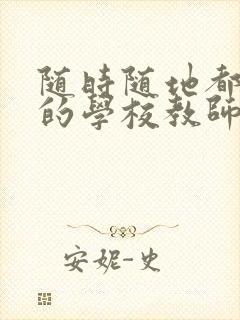 随時随地都
的學校教師
安妮-史